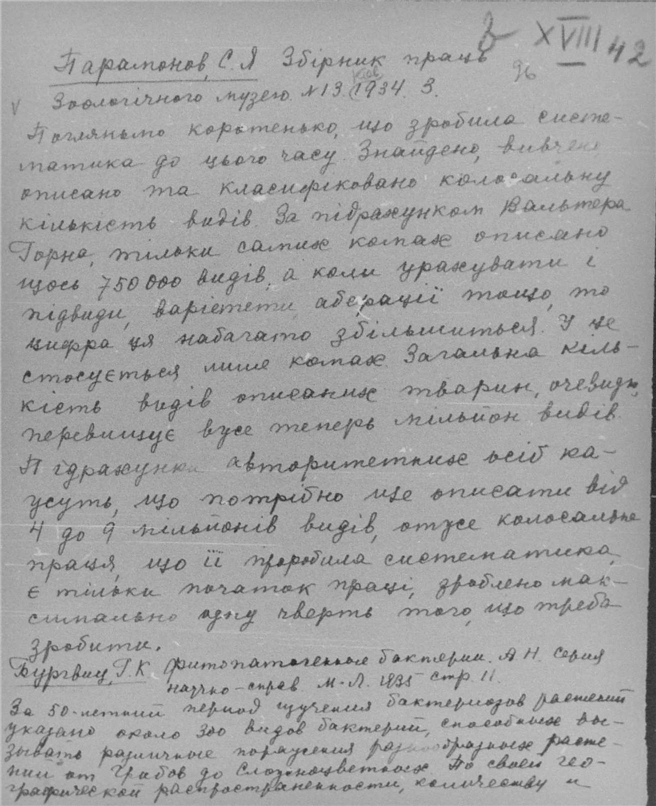 XVIII 42
96
Парамонов, С.Я Збірник праць
Зоологічного музею №13. Київ 1934. 3.
Погляньмо коротенько, що зробила систе-
матика до цього часу. Знайдено, вивчено
описано та класифіковано колосальну
кількість видів. За підрахунком Вальтера
Горна, тільки самих комах описано
щось 750 000 видів, а коли урахувати і
підвиди, варієтети, аберації тощо, то
цифра ця набагато збільшиться. У це
стосується лише комах. Загальна кіль-
кість видів описаних тварин, очевидно,
перевищує вже теперь мільйон видів.
Підрахунки авторитетних осіб ка-
жуть, що потрібно ще описати від
4 до 9 мільйонів видів, отже колосальна
праця, що її проробила систематика,
є тільки початок праці, зроблено мак-
симально одну чверть того, що треба
зробити.
Бургвиц, Г.К Фитопатогенные бактерии. А.Н. Серия
научно-справ М-Л. 1935 стр. 11.
За 50-летний период изучения бактериозов растений
указано около 300 видов бактерий, способных вы-
зывать различные поражения разнообразных расте-
ний от Грибов до Сложноцветных По своей гео-
графической распространенности, количеству и